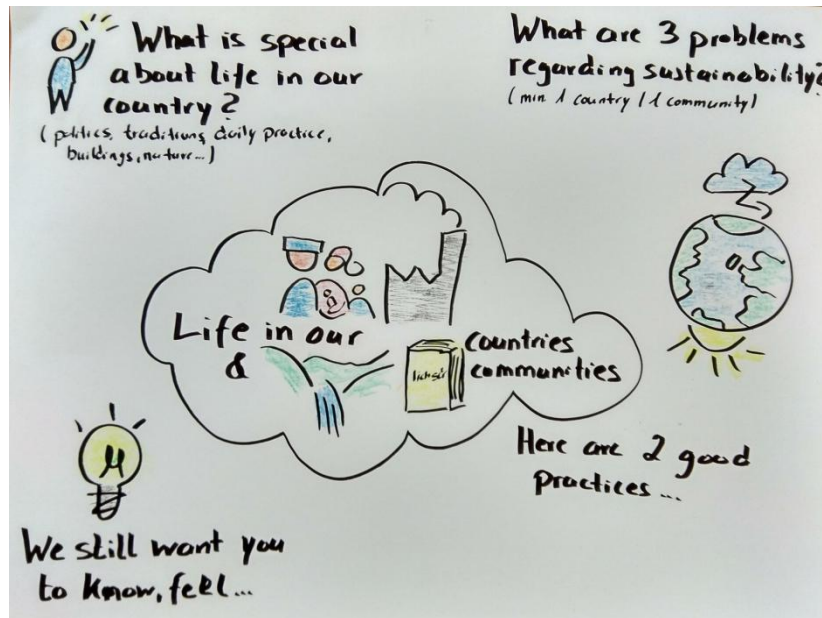 What is special
about life in our
country?
(politics, traditions, daily practice,
buildings, nature...)
What are 3 problems
regarding sustainability?
(min. 1 country / 1 community)
Life in our
&
countries
communities
Here are 2 good
practices...
We still want you
to know, feel...